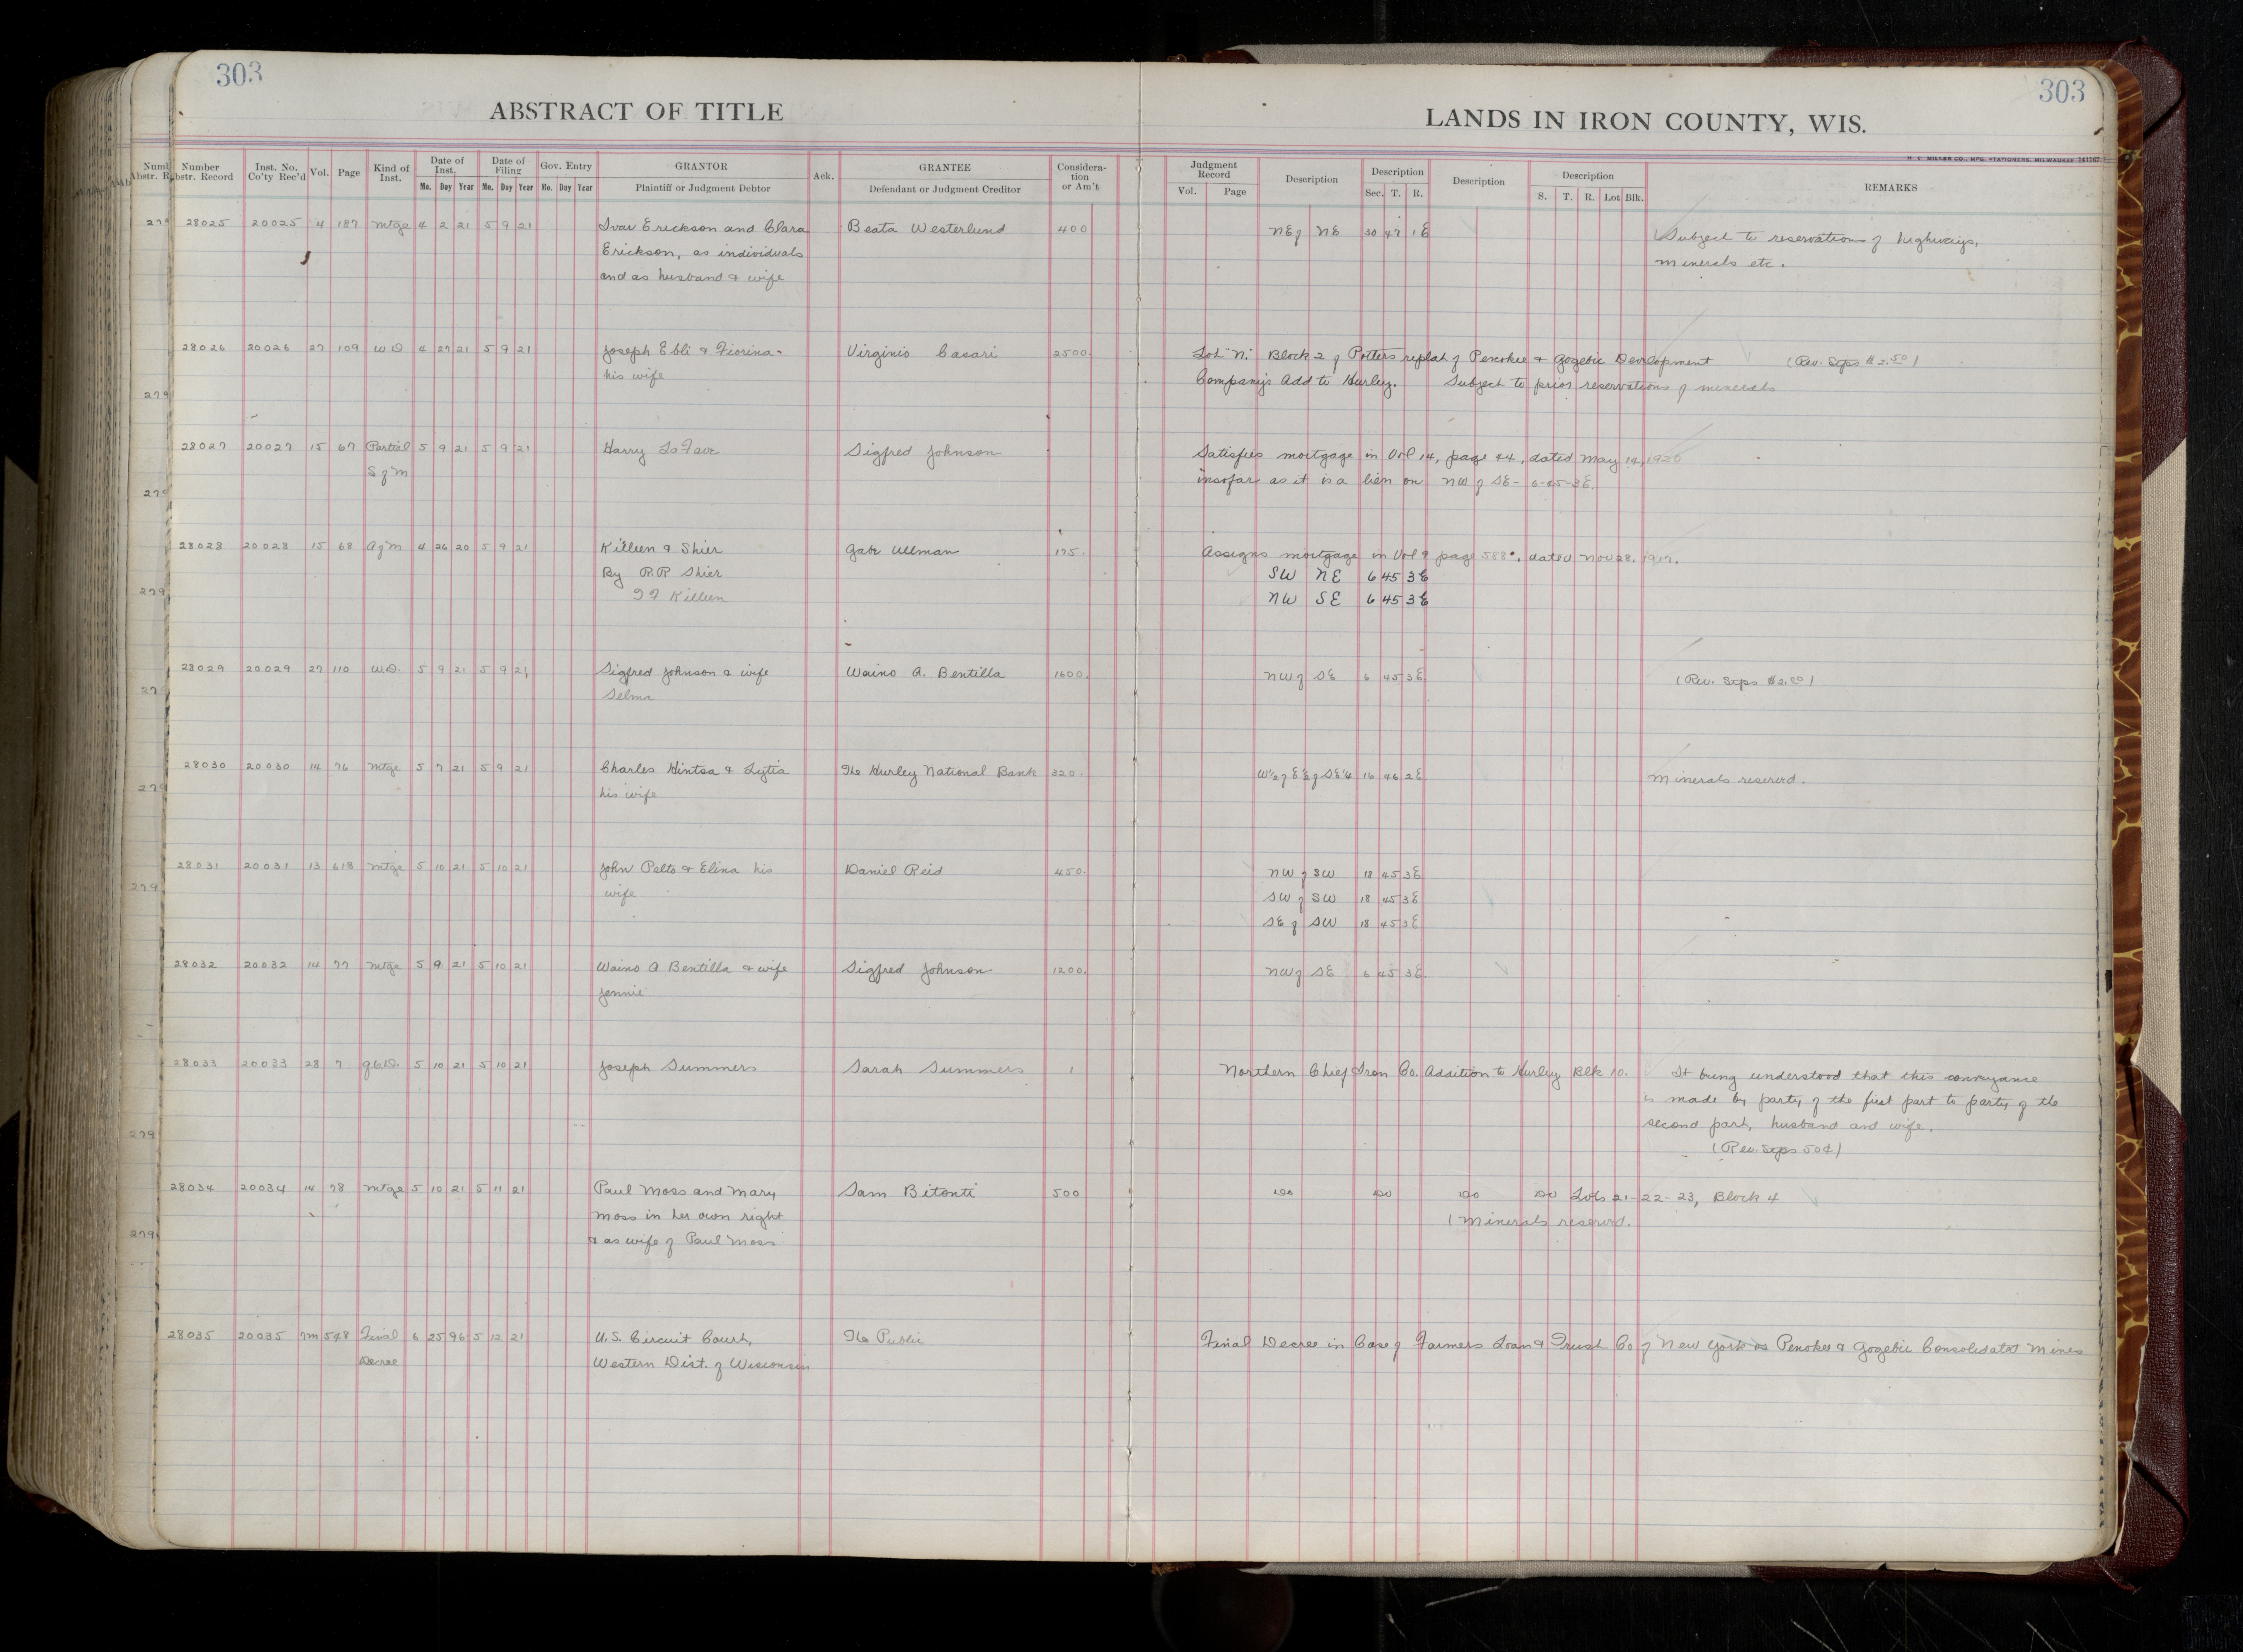 303
303
ABSTRACT OF TITLE
LANDS IN IRON COUNTY, WIS.
H. C. MILLER CO., MFG. STATIONERS, MILWAUKEE 161167
Number Abstr. Record Inst. No. Co'ty Rec'd Vol. Page Kind of Inst. Date of Inst. Mo. Day Year Date of Filing Mo. Day Year Gov. Entry No. Day Year GRANTOR Plaintiff or Judgment Debtor Ack. GRANTEE Defendant or Judgment Creditor Consideration or Am't Judgment Record Vol. Page Description Description Sec. T. R. Description Description S. T. R. Lot Blk. REMARKS
28025 20025 4 187 Mtge 4 2 21 5 9 21 Ivar Erickson and Clara Beata Westerlund 400 NE of NE 30 47 1E Subject to reservations of highways,
Erickson, as individuals minerals etc.
and as husband & wife
28026 20026 27 109 W D 4 27 21 5 9 21 Joseph Ebli & Fiorina Virginio Casari 2500. Lot "N" Block 2 of Potters replat of Penokee & Gogebic Development (Rev. Stps $2.50)
his wife Company's Add to Hurley. Subject to prior reservations of minerals
28027 20027 15 67 Partial 5 9 21 5 9 21 Harry LaFave Sigfred Johnson Satisfies mortgage in Vol 14, page 44, dated May 14, 1920
S of M insofar as it is a lien on NW of SE- 6-45-3E.
28028 20028 15 68 A of M 4 26 20 5 9 21 Killeen & Shier Gabe Ullman 175. Assigns mortgage in Vol 9 page 588, dated Nov 28, 1917.
By R.R Shier SW NE 6 45 3E
Killeen NW SE 6 45 3E
28029 20029 27 110 W.D. 5 9 21 5 9 21 Sigfred Johnson & wife Waino A. Bentilla 1600. NW of SE 6 45 3E (Rev. Stps $2.00)
Selma
28030 20030 14 76 Mtge 5 7 21 5 9 21 Charles Hintsa & Lytia The Hurley National Bank 320. W½ of E½ of SE¼ 16 46 2E Minerals reserved.
his wife
28031 20031 13 618 Mtge 5 10 21 5 10 21 John Pelto & Elina his Daniel Reid 450. NW of SW 18 45 3E
wife SW of SW 18 45 3E
SE of SW 18 45 3E
28032 20032 14 77 Mtge 5 9 21 5 10 21 Waino A Bentilla & wife Sigfred Johnson 1200. NW of SE 6 45 3E
Jennie
28033 20033 28 7 Q.C.D. 5 10 21 5 10 21 Joseph Summers Sarah Summers 1 Northern Chief Iron Co. Addition to Hurley Blk 10. It being understood that this conveyance
is made by party of the first part to party of the
second part, husband and wife.
(Rev. Stps 50¢)
28034 20034 14 78 Mtge 5 10 21 5 11 21 Paul Moss and Mary Sam Bitonti 500 do do do do Lots 21-22-23, Block 4
Moss in her own right (Minerals reserved.
& as wife of Paul Moss
28035 20035 7M 548 Final 6 25 96 5 12 21 U.S. Circuit Court, The Public Final Decree in Case of Farmers Loan & Trust Co of New York vs Penokee & Gogebic Consolidated Mines
Decree Western Dist. of Wisconsin